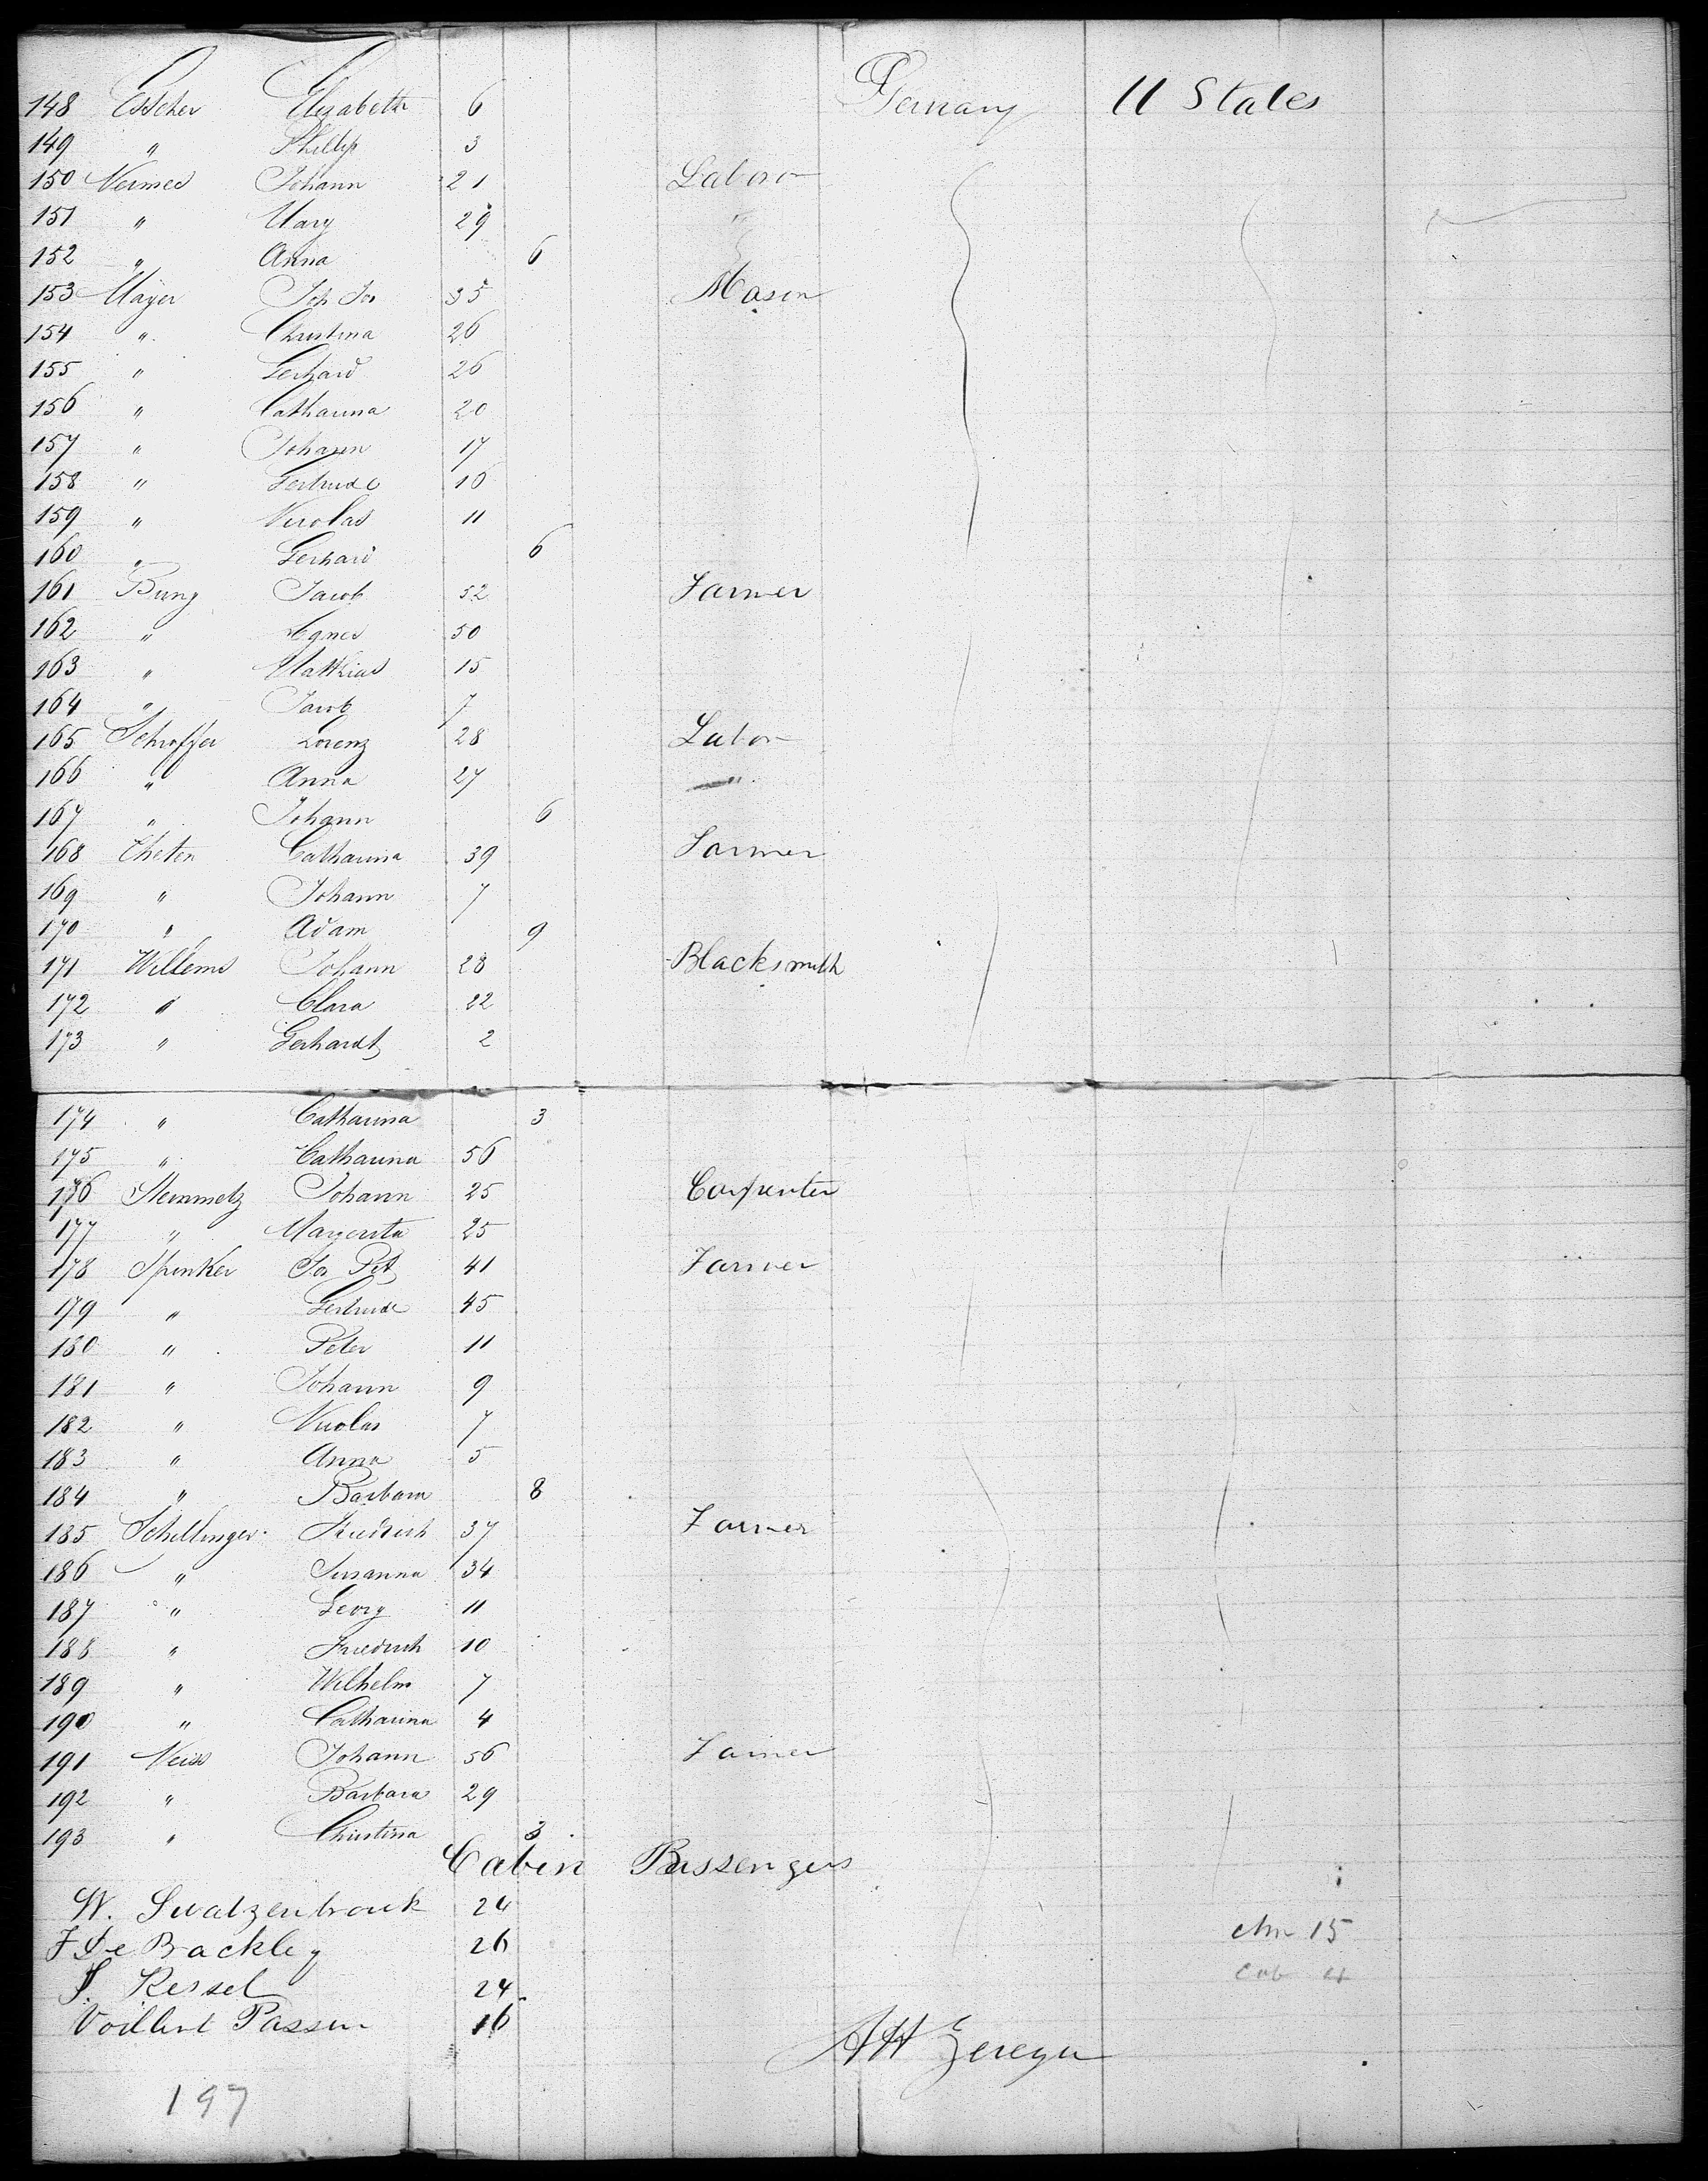 148 Esscher Elizabeth 6 Germany U States
149 " Phillip 3
150 Nermes Johann 21 Labor
151 " Mary 29 "
152 " Anna 6
153 Mayer Joh Jos 35 Mason
154 " Christina 26
155 " Gerhard 26
156 " Catharina 20
157 " Johann 17
158 " Gertrude 16
159 " Nicolas 11
160 " Gerhard 6
161 Bung Jacob 52 Farmer
162 " Agnes 50
163 " Mathias 15
164 " Jacob 7
165 Schroffer Lorenz 28 Labor
166 " Anna 27 "
167 " Johann 6
168 Theten Catharina 39 Farmer
169 " Johann 7
170 " Adam 9
171 Willems Johann 28 Blacksmith
172 " Clara 22
173 " Gerhardt 2
174 " Catharina 3
175 " Catharina 56
176 Steinmetz Johann 25 Carpenter
177 " Margerita 25
178 Spinker Jos Pet 41 Farmer
179 " Gertrude 45
180 " Peter 11
181 " Johann 9
182 " Nicolas 7
183 " Anna 5
184 " Barbara 8
185 Schillinger Friedrich 37 Farmer
186 " Susanna 34
187 " Georg 11
188 " Friedrich 10
189 " Wilhelm 7
190 " Catharina 4
191 Neiss Johann 56 Farmer
192 " Barbara 29
193 " Christina 3
Cabin Passengers
W. Swatzenbrouk 24
F De Brackley 26
J. Kessel 24
Voillert Passen 16
15
Cab 4
A H Zerega
197